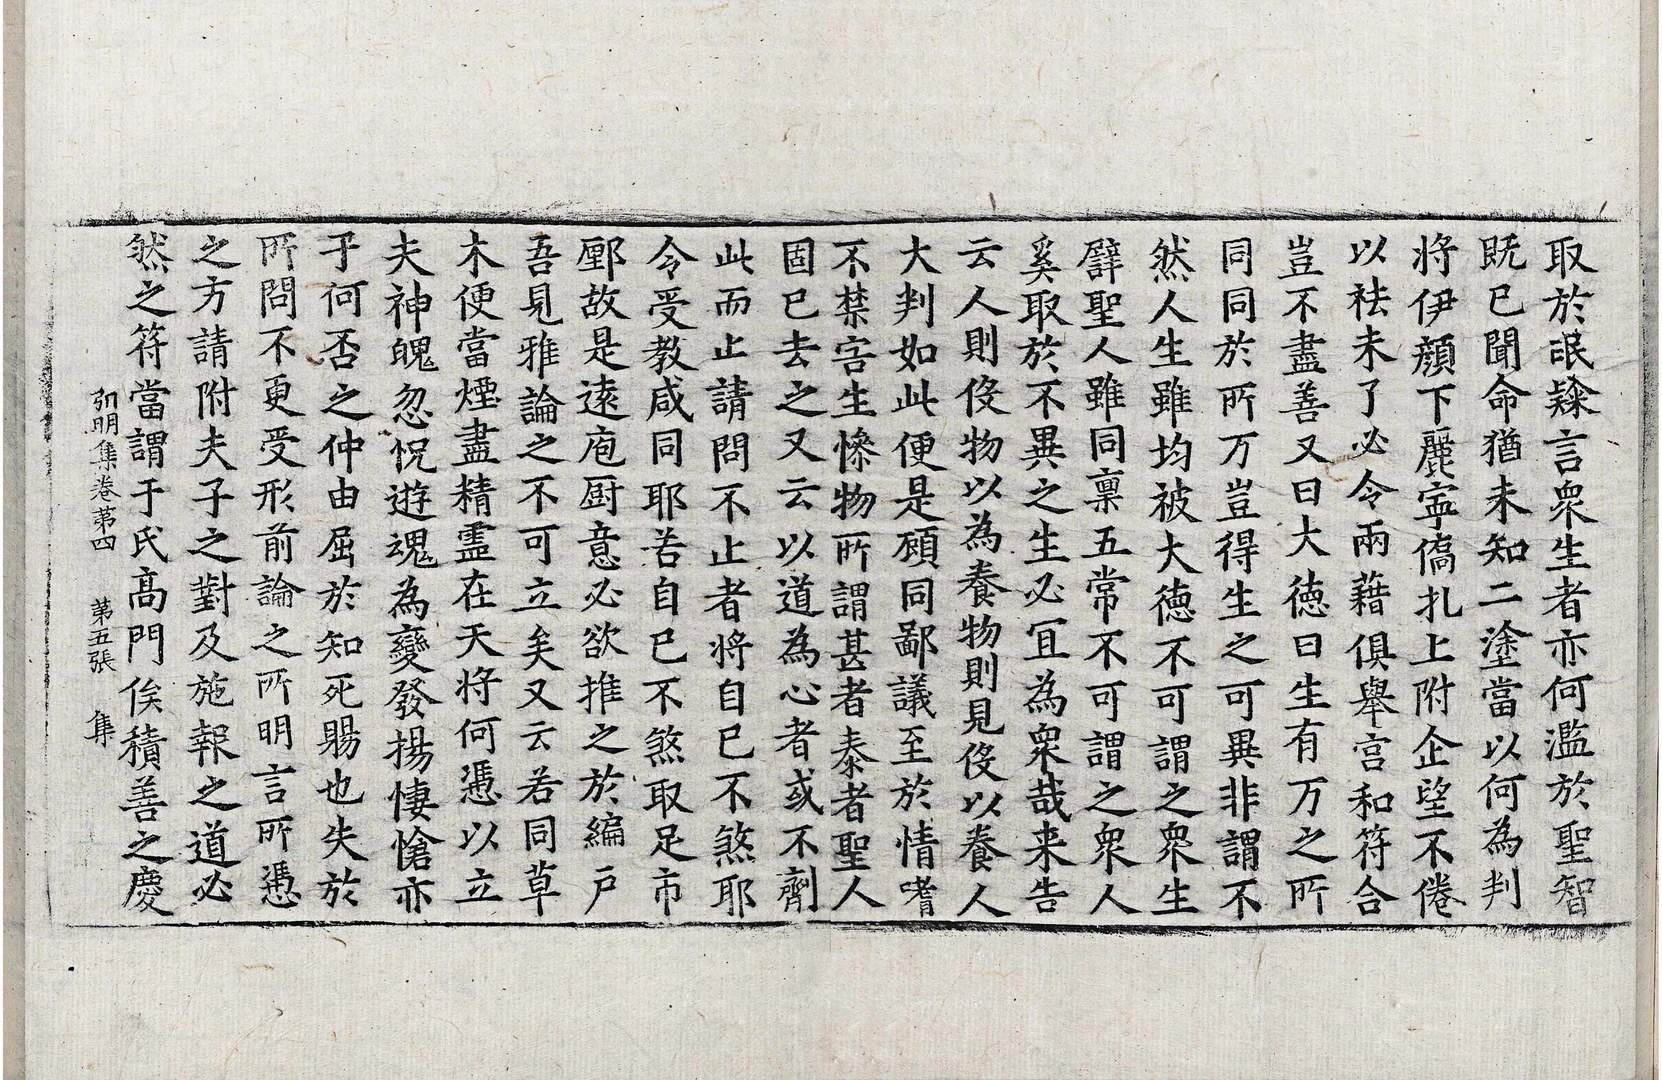 取於氓𨽻言衆生者亦何濫於聖智
既已聞命猶未知二塗當以何為判
將伊顔下麗寕僑扎上附企望不倦
以袪未了必令兩藉俱舉宫和符合
豈不盡善又曰大德曰生有万之所
同同於所万豈得生之可異非謂不
然人生雖均被大德不可謂之衆生
譬聖人雖同禀五常不可謂之衆人
奚取於不異之生必冝為衆哉来告
云人則役物以為養物則見役以養人
大判如此便是顧同鄙議至於情嗜
不禁害生慘物所謂甚者泰者聖人
固已去之又云以道為心者或不劑
此而止請問不止者將自已不煞耶
令受教咸同耶若自已不煞取足市
廛故是遠庖厨意必欲推之於編户
吾見雅論之不可立矣又云若同草
木便當煙盡精靈在天将何憑以立
夫神魄忽怳遊魂為變發揚悽愴亦
于何否之仲由屈於知死賜也失於
所問不更受形前論之所明言所憑
之方請附夫子之對及施報之道必
然之符當謂于氏髙門俟積善之慶
弘明集卷苐四 苐五張 集